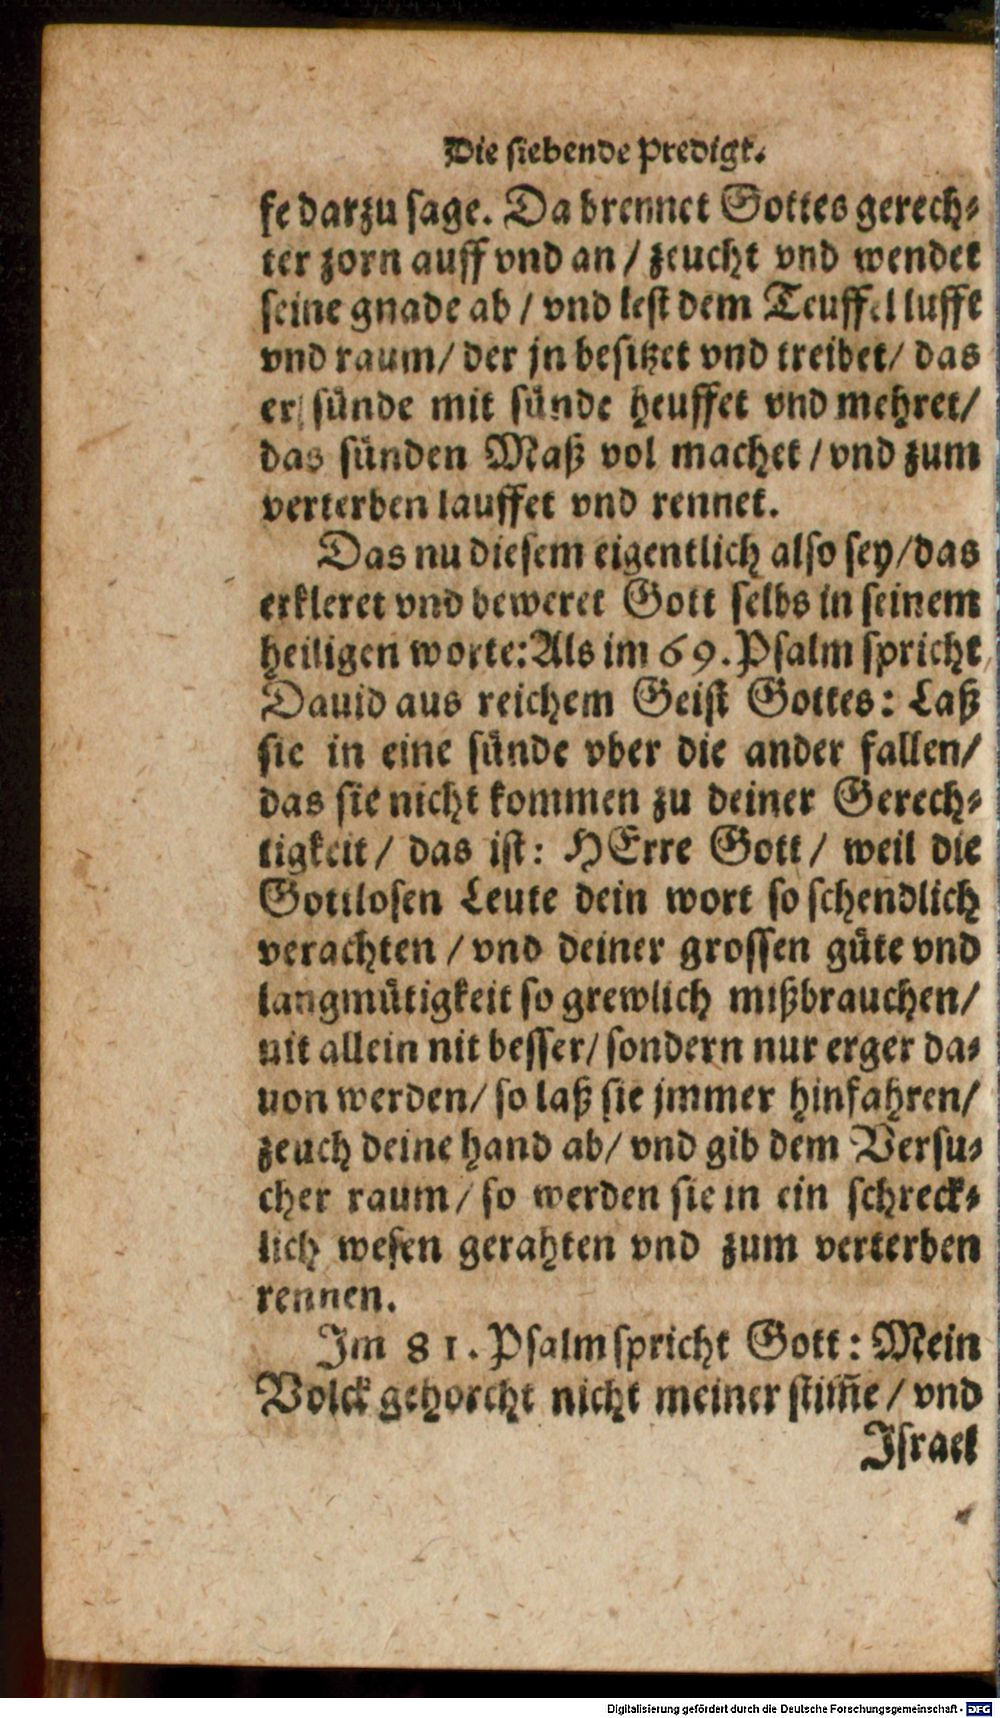 Die siebende Predigt.
fe darzu sage. Da brennet Gottes gerech⸗
ter zorn auff vnd an / zeucht vnd wendet
seine gnade ab / vnd lest dem Teuffel lufft
vnd raum/ der jn besitzet vnd treibet/ das
er sünde mit sünde heuffet vnd mehret/
das sünden Maß vol machet / vnd zum
verterben lauffet vnd rennet.
Das nu diesem eigentlich also sey/das
erkleret vnd beweret Gott selbs in seinem
heiligen worte: Als im 69. Psalm spricht
Dauid aus reichem Geist Gottes: Laß
sie in eine sünde vber die ander fallen/
das sie nicht kommen zu deiner Gerech⸗
tigkeit/ das ist: HErre Gott/ weil die
Gottlosen Leute dein wort so schendlich
verachten / vnd deiner grossen güte vnd
langmütigkeit so grewlich mißbrauchen/
nit allein nit besser/ sondern nur erger da⸗
uon werden/ so laß sie jmmer hinfahren/
zeuch deine hand ab/ vnd gib dem Versu⸗
cher raum/ so werden sie in ein schreck⸗
lich wesen gerahten vnd zum verterben
rennen.
Im 81. Psalm spricht Gott: Mein
Volck gehorcht nicht meiner stim̃e / vnd
Israel
Digitalisierung gefördert durch die Deutsche Forschungsgemeinschaft - DFG